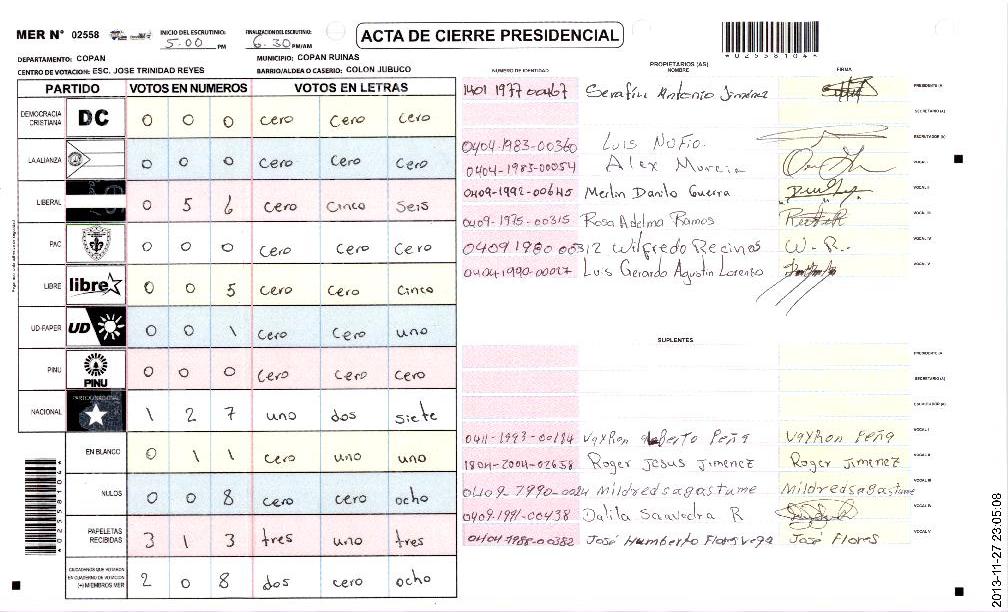 MER N° 02558 INICIO DEL ESCRUTINIO: 5:00 PM FINALIZACION DEL ESCRUTINIO: 6:30 PM/AM
ACTA DE CIERRE PRESIDENCIAL
*02558104*
DEPARTAMENTO: COPAN MUNICIPIO: COPAN RUINAS
CENTRO DE VOTACION: ESC. JOSE TRINIDAD REYES BARRIO/ALDEA O CASERIO: COLON JUBUCO
PARTIDO VOTOS EN NUMEROS VOTOS EN LETRAS
DEMOCRACIA CRISTIANA DC 0 0 0 cero cero cero
LA ALIANZA 0 0 0 cero cero cero
LIBERAL 0 5 6 cero cinco seis
PAC 0 0 0 cero cero cero
LIBRE libre 0 0 5 cero cero cinco
UD-FAPER UD 0 0 1 cero cero uno
PINU PINU 0 0 0 cero cero cero
NACIONAL 1 2 7 uno dos siete
EN BLANCO 0 1 1 cero uno uno
NULOS 0 0 8 cero cero ocho
PAPELETAS RECIBIDAS 3 1 3 tres uno tres
CIUDADANOS QUE VOTARON EN CUADERNO DE VOTACION (+) MIEMBROS MER 2 0 8 dos cero ocho
*02558104*
PROPIETARIOS (AS)
NUMERO DE IDENTIDAD NOMBRE FIRMA
1401 1977 00467 Serafin Antonio Jiménez PRESIDENTE (A)
SECRETARIO (A)
0404-1983-00360 Luis Nufio. ESCRUTADOR (A)
0404-1983-00054 Alex Murcia VOCAL I
0409-1992-00645 Merlin Danilo Guerra VOCAL II
0409-1975-00315 Rosa Adelma Ramos VOCAL III
0409 1980 00312 Wilfredo Recinos W. R. VOCAL IV
0404-1990-00017 Luis Gerardo Agustin Lorenzo VOCAL V
SUPLENTES
PRESIDENTE (A)
SECRETARIO (A)
ESCRUTADOR (A)
0411-1993-00184 Vayron Peña Vayron Peña VOCAL I
1804-2004-02658 Roger Jesus Jimenez Roger Jimenez VOCAL II
0409 7990-0024 Mildred sagastume Mildred sagastume VOCAL III
0409-1991-00438 Dalila Saavedra R VOCAL IV
0404 1988-00382 José Humberto Flores Vega José Flores VOCAL V
2013-11-27 23:05:08